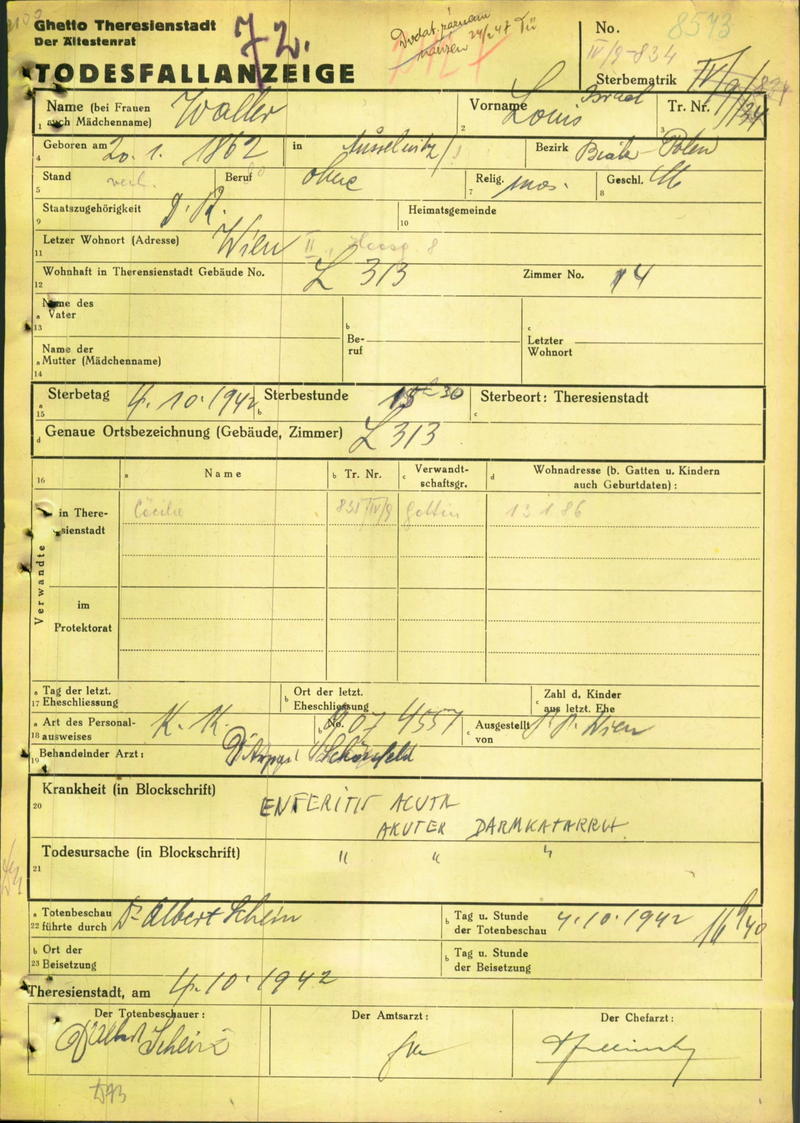 Ghetto Theresienstadt
Der Ältestenrat
TODESFALLANZEIGE
72.
No. 8543
IV/9-834
Sterbematrik
Name (bei Frauen auch Mädchenname) Waller
1
Vorname Louis Israel
2
Tr. Nr. IV/9/834
3
Geboren am 20. 1. 1862
4
in
Bezirk Polen
Stand verh.
5
Beruf ohne
6
Relig. mos.
7
Geschl. M
8
Staatszugehörigkeit D. R.
9
Heimatsgemeinde
10
Letzer Wohnort (Adresse) Wien II 8
11
Wohnhaft in Therensienstadt Gebäude No. L 313
12
Zimmer No. 14
Name des
a Vater
13
b Beruf
c Letzter Wohnort
Name der
a Mutter (Mädchenname)
14
a Sterbetag 4. 10. 1942
15
b Sterbestunde 15 30
c Sterbeort: Theresienstadt
d Genaue Ortsbezeichnung (Gebäude, Zimmer) L 313
16
a Name
b Tr. Nr.
c Verwandtschaftsgr.
d Wohnadresse (b. Gatten u. Kindern auch Geburtdaten):
Verwandte
in Theresienstadt
Cäcilie 835 IV/9 Gattin 13 1 86
im Protektorat
a Tag der letzt.
17 Eheschliessung
b Ort der letzt. Eheschliessung
c Zahl d. Kinder aus letzt. Ehe
a Art des Personal-
18 ausweises K. K.
b No. 4557
c Ausgestellt von P. P. Wien
Behandelnder Arzt: Schönfeld
19
Krankheit (in Blockschrift)
20
ENTERITIS ACUTA
AKUTER DARMKATARRH
Todesursache (in Blockschrift) " " "
21
a Totenbeschau
22 führte durch Dr Albert Schein
b Tag u. Stunde der Totenbeschau 4. 10. 1942 16h 40
b Ort der
23 Beisetzung
b Tag u. Stunde der Beisetzung
Theresienstadt, am 4. 10. 1942
Der Totenbeschauer:
Dr Albert Schein
Der Amtsarzt:
Der Chefarzt: